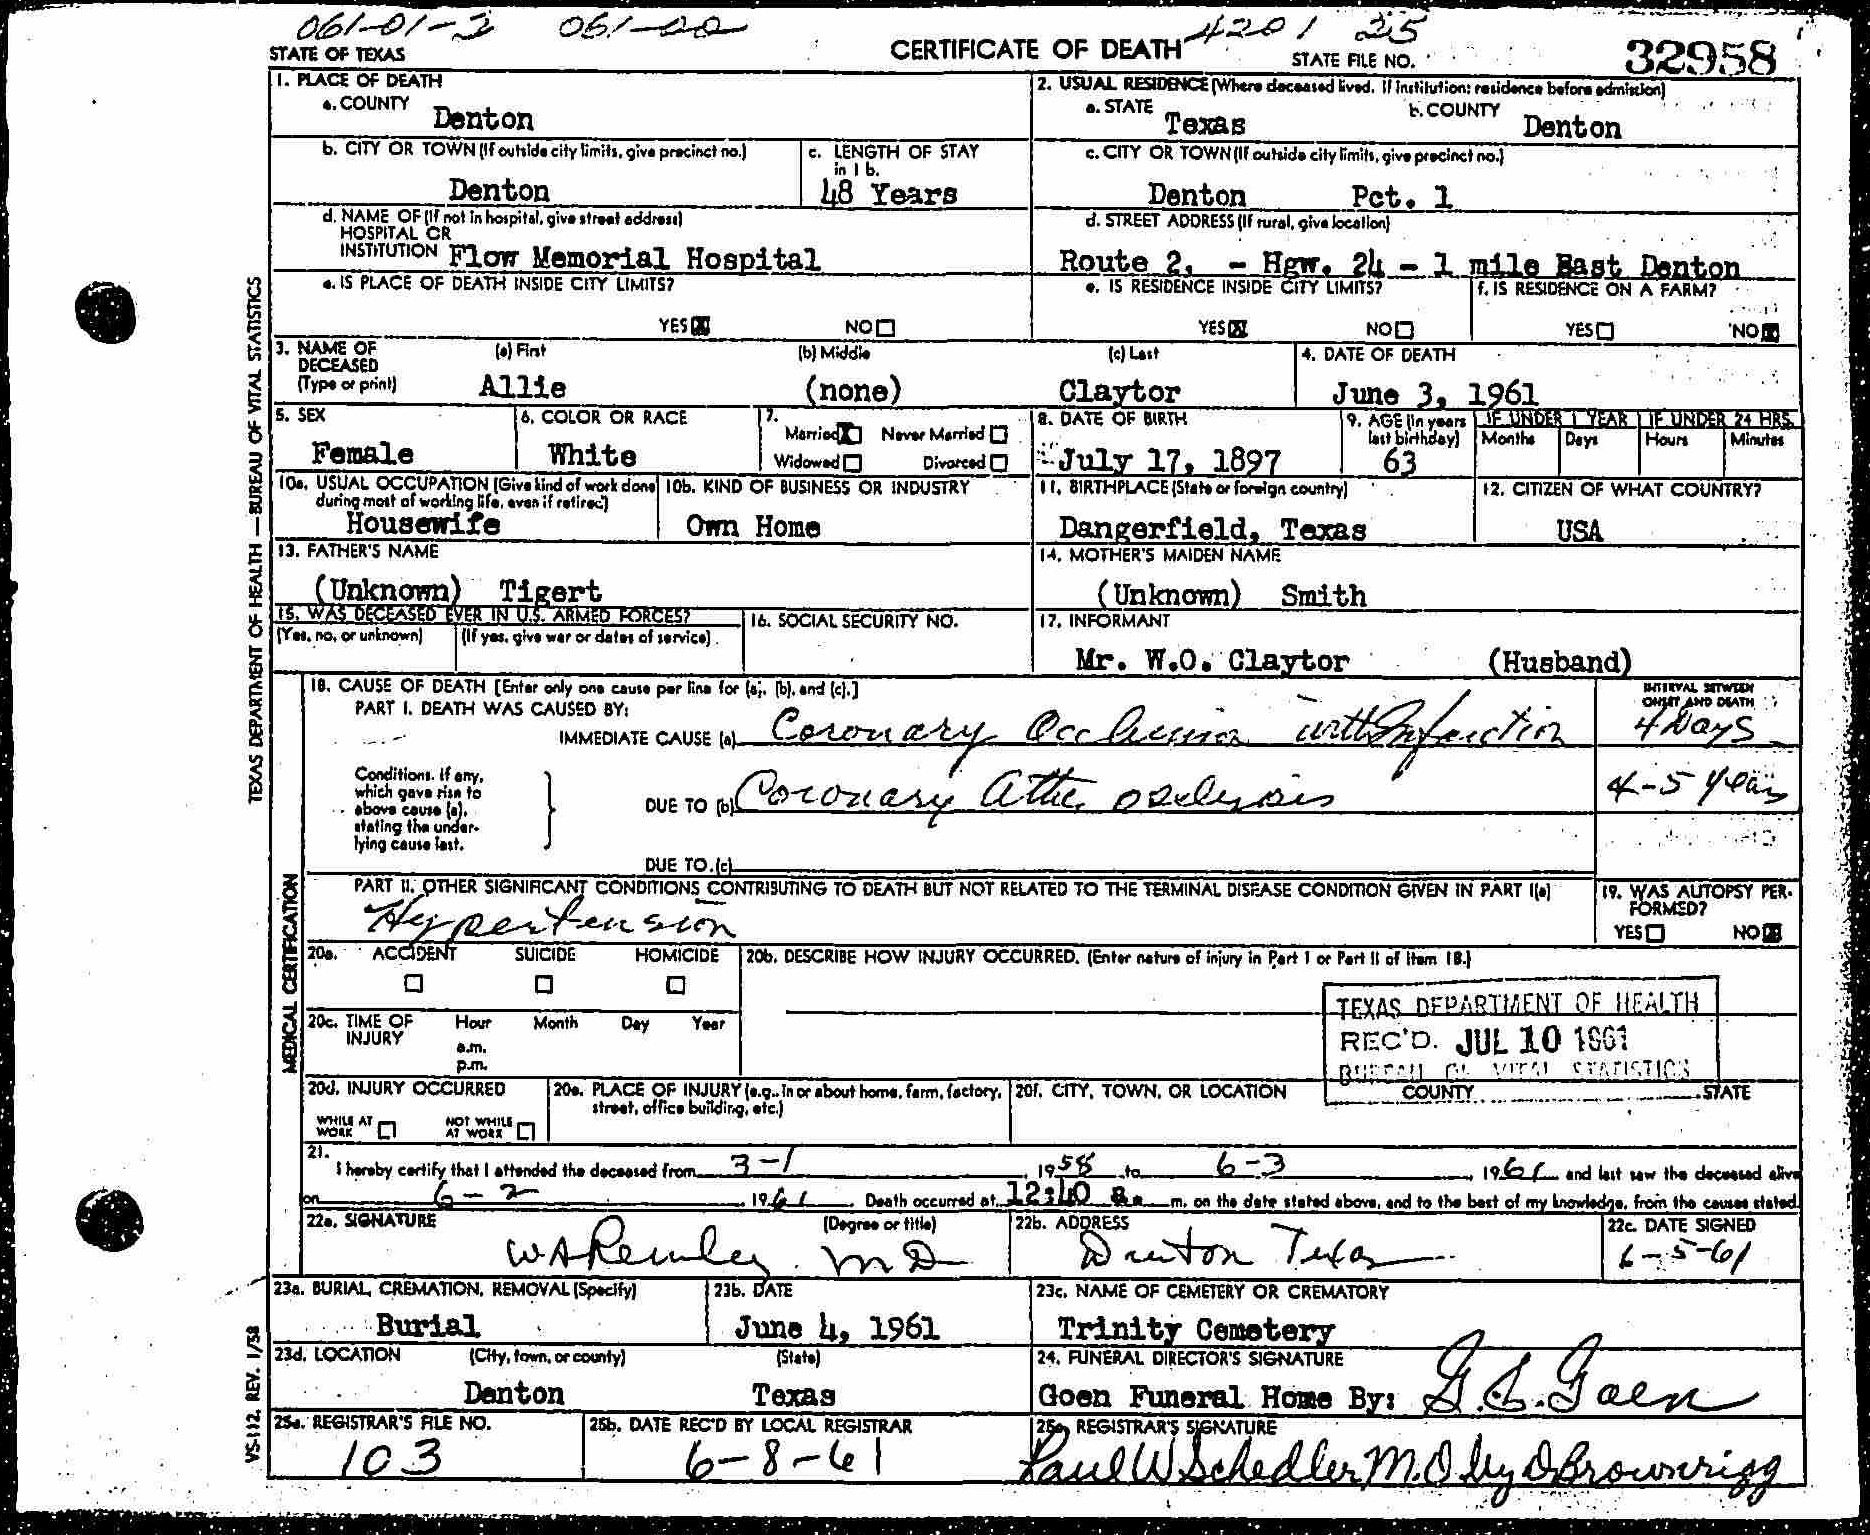 061-01-3 061-00 4201 25
STATE OF TEXAS CERTIFICATE OF DEATH STATE FILE NO. 32958
1. PLACE OF DEATH
a. COUNTY Denton
2. USUAL RESIDENCE (Where deceased lived. If institution: residence before admission)
a. STATE Texas b. COUNTY Denton
b. CITY OR TOWN (If outside city limits, give precinct no.) Denton
c. LENGTH OF STAY in 1 b. 48 Years
c. CITY OR TOWN (If outside city limits, give precinct no.) Denton Pct. 1
d. NAME OF (If not in hospital, give street address)
HOSPITAL OR
INSTITUTION Flow Memorial Hospital
d. STREET ADDRESS (If rural, give location)
Route 2, - Hgw. 24 - 1 mile East Denton
e. IS PLACE OF DEATH INSIDE CITY LIMITS?
YES X NO
e. IS RESIDENCE INSIDE CITY LIMITS?
YES X NO
f. IS RESIDENCE ON A FARM?
YES NO X
3. NAME OF DECEASED (Type or print)
(a) First (b) Middle (c) Last
Allie (none) Claytor
4. DATE OF DEATH
June 3, 1961
5. SEX
Female
6. COLOR OR RACE
White
7. Married X Never Married
Widowed Divorced
8. DATE OF BIRTH
July 17, 1897
9. AGE (In years last birthday) 63
IF UNDER 1 YEAR IF UNDER 24 HRS.
Months Days Hours Minutes
10a. USUAL OCCUPATION (Give kind of work done during most of working life, even if retired)
Housewife
10b. KIND OF BUSINESS OR INDUSTRY
Own Home
11. BIRTHPLACE (State or foreign country)
Dangerfield, Texas
12. CITIZEN OF WHAT COUNTRY?
USA
13. FATHER'S NAME
(Unknown) Tigert
14. MOTHER'S MAIDEN NAME
(Unknown) Smith
15. WAS DECEASED EVER IN U.S. ARMED FORCES?
(Yes, no, or unknown) (If yes, give war or dates of service)
16. SOCIAL SECURITY NO.
17. INFORMANT
Mr. W.O. Claytor (Husband)
18. CAUSE OF DEATH [Enter only one cause per line for (a), (b), and (c).]
PART I. DEATH WAS CAUSED BY:
INTERVAL BETWEEN ONSET AND DEATH
IMMEDIATE CAUSE (a) Coronary Occlusion with Infarction 4 Days
Conditions, if any, which gave rise to above cause (a), stating the underlying cause last.
DUE TO (b) Coronary 4-5 years
DUE TO (c)
PART II. OTHER SIGNIFICANT CONDITIONS CONTRIBUTING TO DEATH BUT NOT RELATED TO THE TERMINAL DISEASE CONDITION GIVEN IN PART I(a)
Hypertension
19. WAS AUTOPSY PERFORMED?
YES NO X
20a. ACCIDENT SUICIDE HOMICIDE
20b. DESCRIBE HOW INJURY OCCURRED. (Enter nature of injury in Part I or Part II of Item 18.)
TEXAS DEPARTMENT OF HEALTH
REC'D. JUL 10 1961
BUREAU OF VITAL STATISTICS
20c. TIME OF INJURY Hour Month Day Year
a.m.
p.m.
20d. INJURY OCCURRED
WHILE AT WORK NOT WHILE AT WORK
20e. PLACE OF INJURY (e.g., in or about home, farm, factory, street, office building, etc.)
20f. CITY, TOWN, OR LOCATION COUNTY STATE
21. I hereby certify that I attended the deceased from 3-1 1958 to 6-3, 1961 and last saw the deceased alive
on 6-2, 1961. Death occurred at 12:40 a. m. on the date stated above, and to the best of my knowledge, from the causes stated.
22a. SIGNATURE (Degree or title)
MD
22b. ADDRESS
Denton Texas
22c. DATE SIGNED
6-5-61
23a. BURIAL, CREMATION, REMOVAL (Specify)
Burial
23b. DATE
June 4, 1961
23c. NAME OF CEMETERY OR CREMATORY
Trinity Cemetery
23d. LOCATION (City, town, or county) (State)
Denton Texas
24. FUNERAL DIRECTOR'S SIGNATURE
Goen Funeral Home By: G. L. Goen
25a. REGISTRAR'S FILE NO.
103
25b. DATE REC'D BY LOCAL REGISTRAR
6-8-61
25c. REGISTRAR'S SIGNATURE
Paul W Schedler M.D. by D Brownrigg
TEXAS DEPARTMENT OF HEALTH — BUREAU OF VITAL STATISTICS
MEDICAL CERTIFICATION
VS-112, REV. 1/58